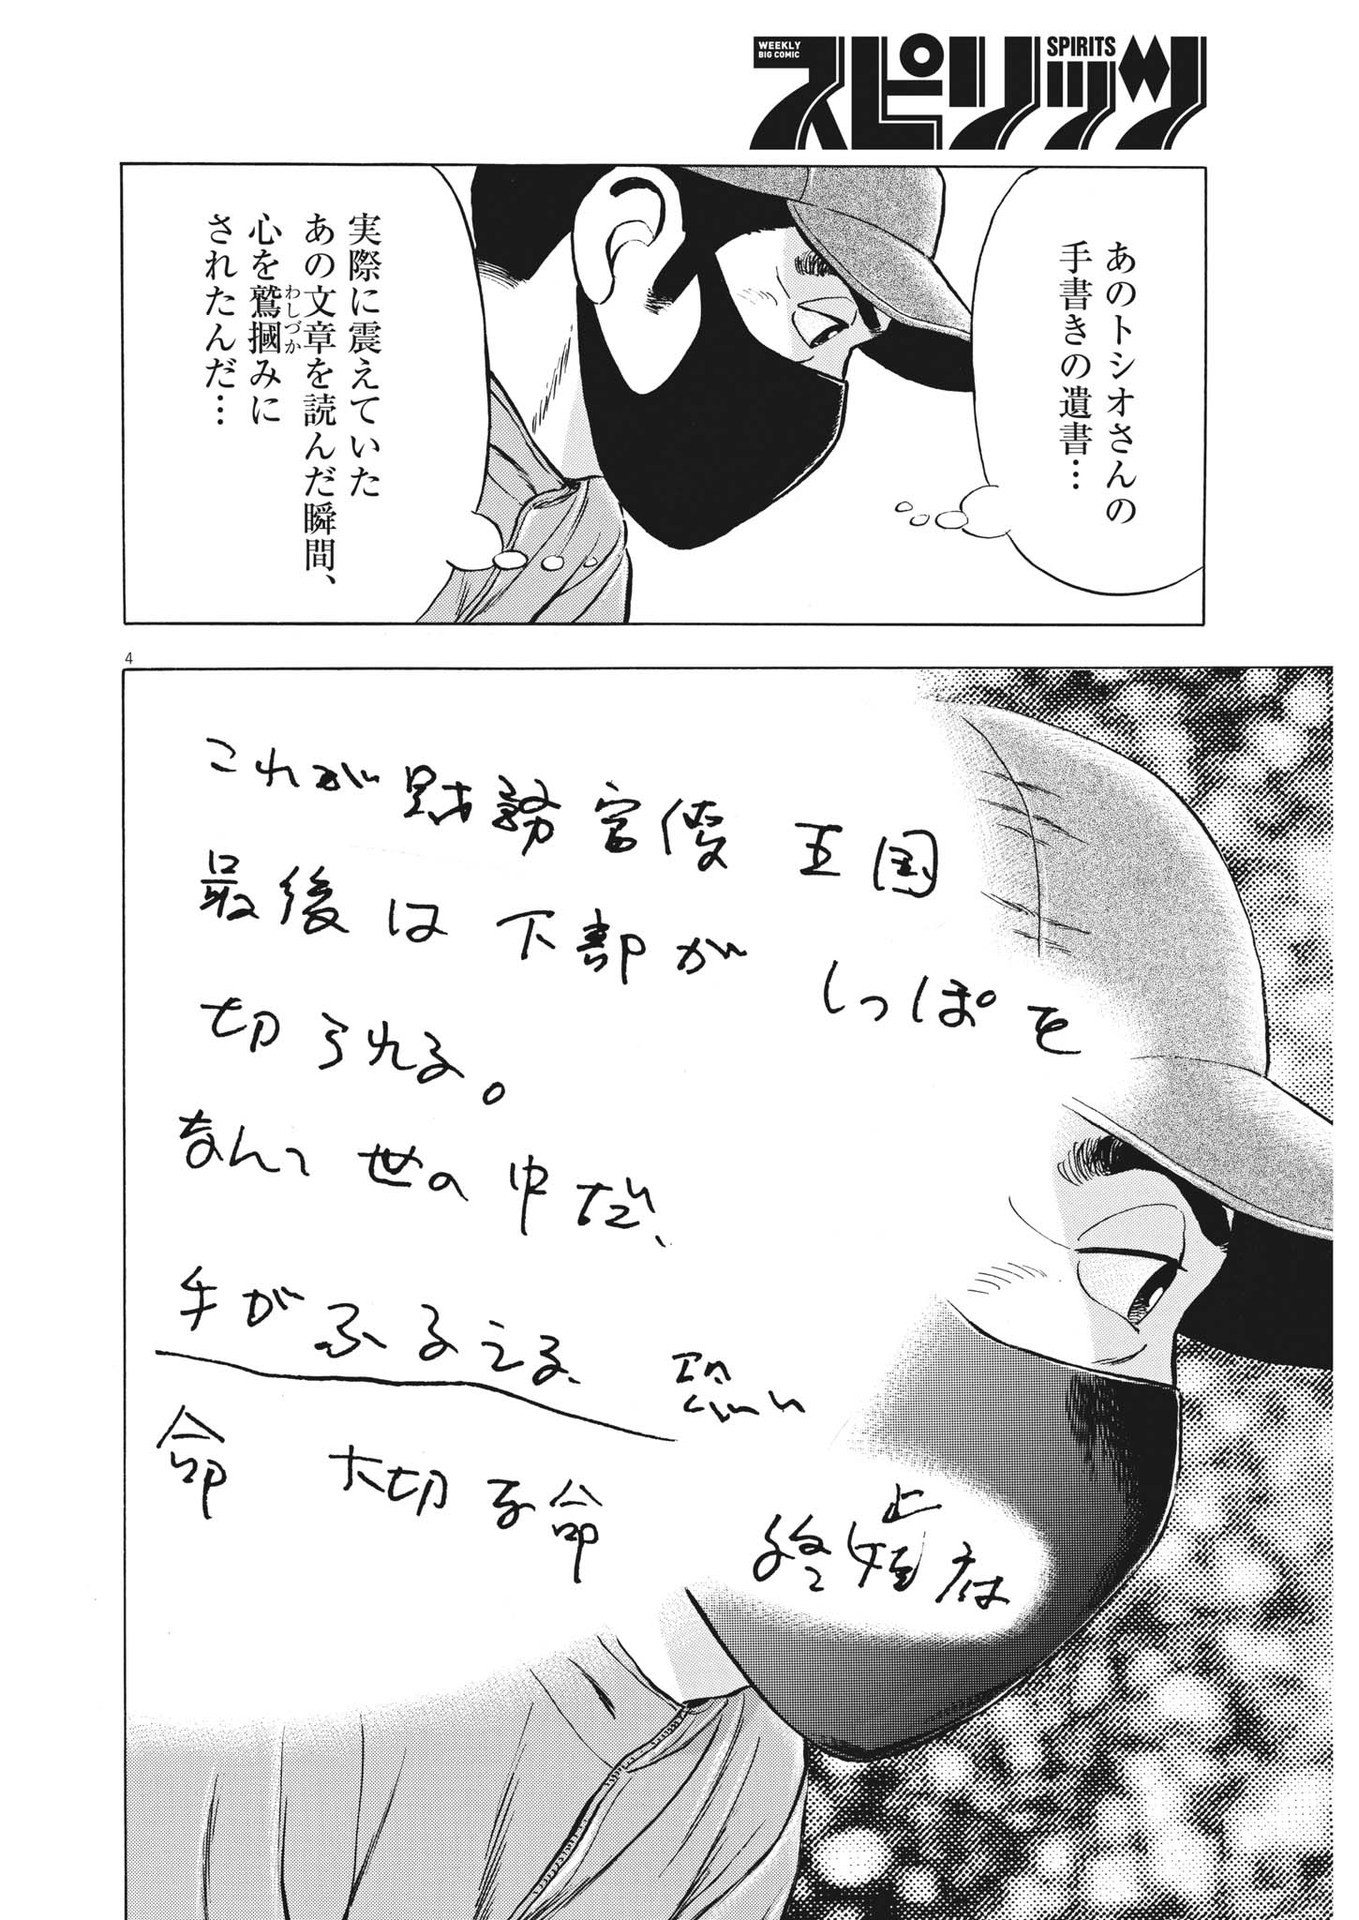 WEEKLY
BIG COMIC
スピリッツ
SPIRITS
あのトシオさんの
手書きの遺書…
実際に震えていた
あの文章を読んだ瞬間、
心を鷲摑みに
わしづか
されたんだ…
4
これが財務官僚王国
最後は下部がしっぽを
切られる。
なんて世の中だ、
手がふるえる、恐い
命 大切な命 終止